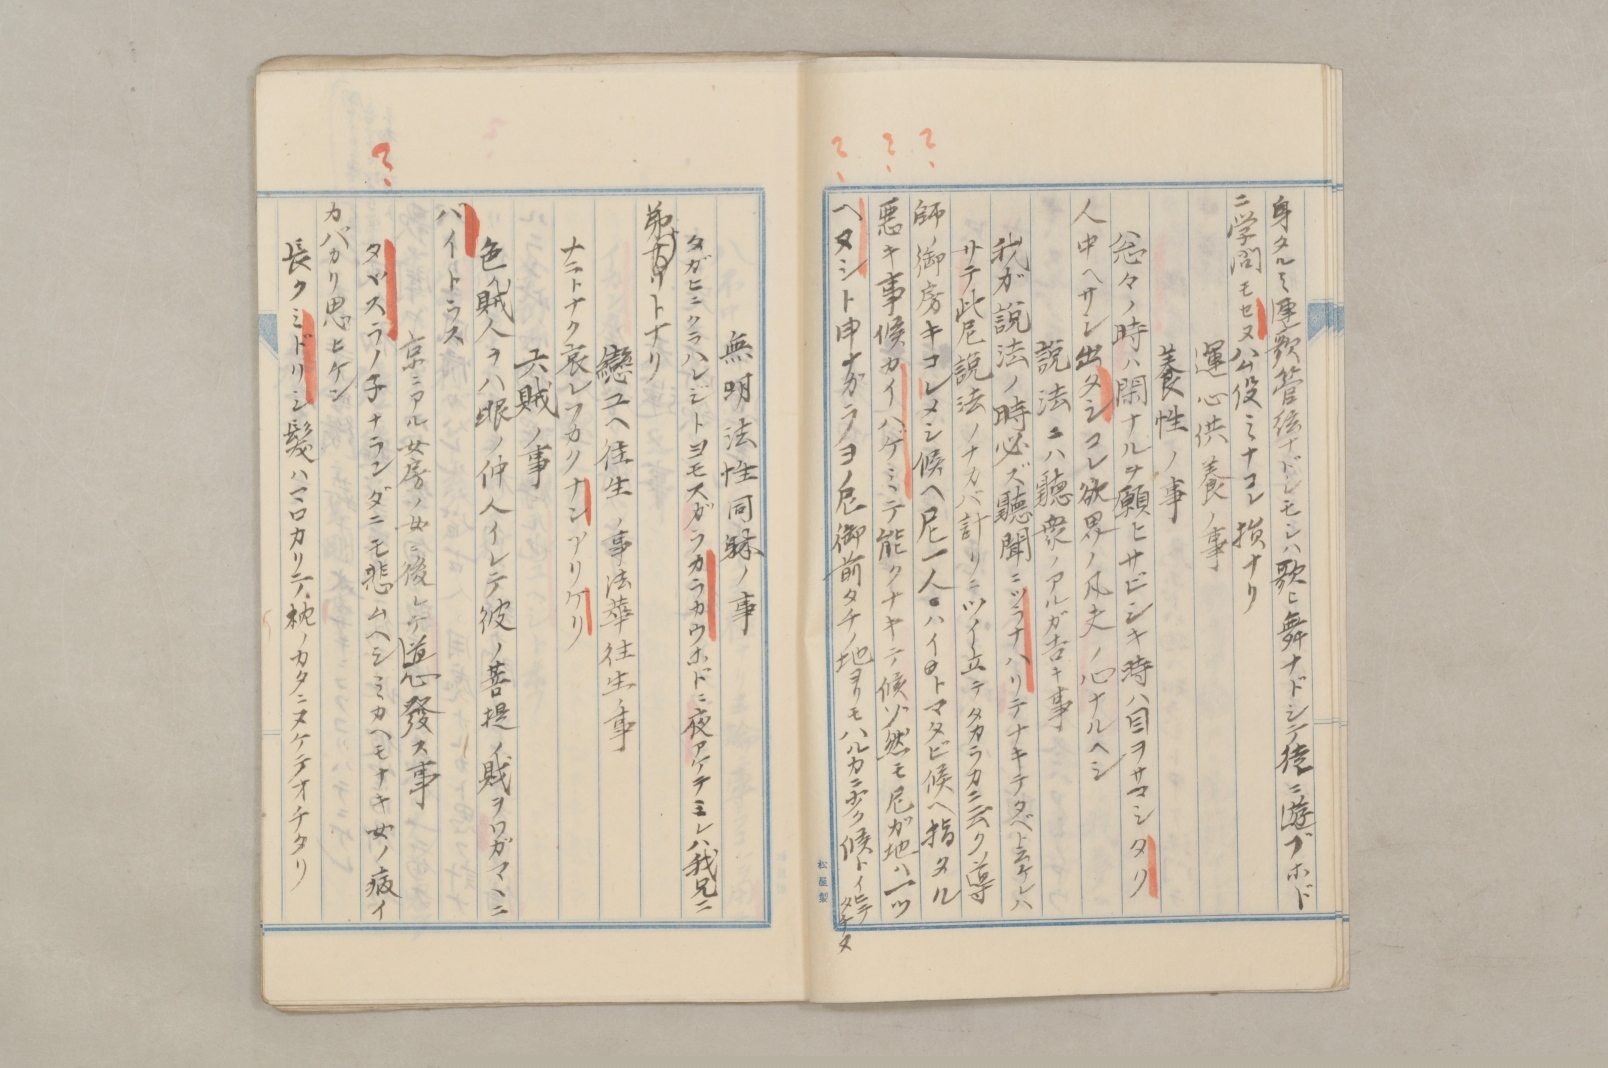 身タルミ連歌管絃ナドレモシハ歌ヒ舞ナドシテ徒ニ遊ブホド
ニ学問モセヌハム役ミナコレ損ナリ
運心供養ノ事
養性ノ事
忩々ノ時ハ閑ナルヲ願ヒサビシキ時ハ目ヲサマシタリ
人中ヘサシ出タシコレ欲界ノ凡夫ノ心ナルヘシ
説法ニハ聽衆ノアルガ吉キ事
我ガ説法ノ時必ズ聽聞ニツラナハリテナキテタベト云ケレハ
サテ此尼説法ノナカバ計リニツイ立テタカラカニ云ク導
師御房キコレメシ候ヘ尼一人ハイヨトマタビ候ヘ指タル
悪キ事候カイハゲミテ能クナキテ候ゾ然モ尼ガ地ハ一ツ
ヘタシト申ナガラヲヨノ尼御前タチノ地ヨリモハルカニ多ク候トイヒテタチヌ
松屋製
無明法性同躰ノ事
タガヒニクラハレジトヨモスガラカラカウホドニ夜アケテミレハ我兄ニ
弟ナリトナリ
戀ユヘ往生ノ事法華往生ノ事
ナニトナク哀レフカクナンアリケリ
六賊ノ事
色ノ賊人ヲハ眼ノ仲人イレテ彼ノ菩提ノ賊ヲワガマヽニ
バイトラス
京ニアル女房ノ女ニ後レテ道心發ス事
タヾスラノ子ナランダニモ悲ムヘシミカヘモナキ女ノ病イ
カバカリ思ヒケン
長クミドリシ髪ハマロカリテ枕ノカタニヌケテオチタリ